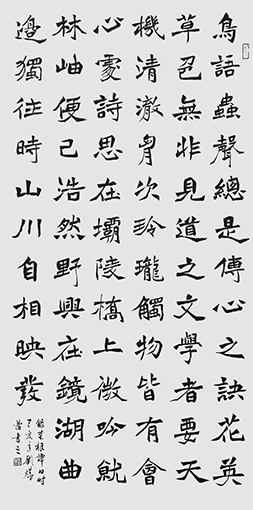 鳥語蟲聲總是傳心之訣花英
草色無非見道之文學者要天
機清澈胷次玲瓏觸物皆有會
心處詩思在壩陵橋上微吟就
林岫便已浩然野興在鏡湖曲
邊獨往時山川自相映發
錄菜根譚
己亥年劉
書之